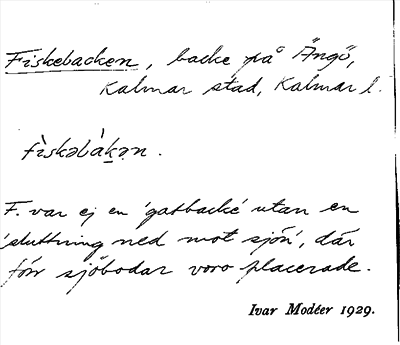 Fiskebacken, backe på Ängö,
Kalmar stad, Kalmar l.
fìskəbàkən.
F. var ej en 'gatbacke' utan en
'sluttning ned mot sjön', där
förr sjöbodar voro placerade.
Ivar Modéer 1929.